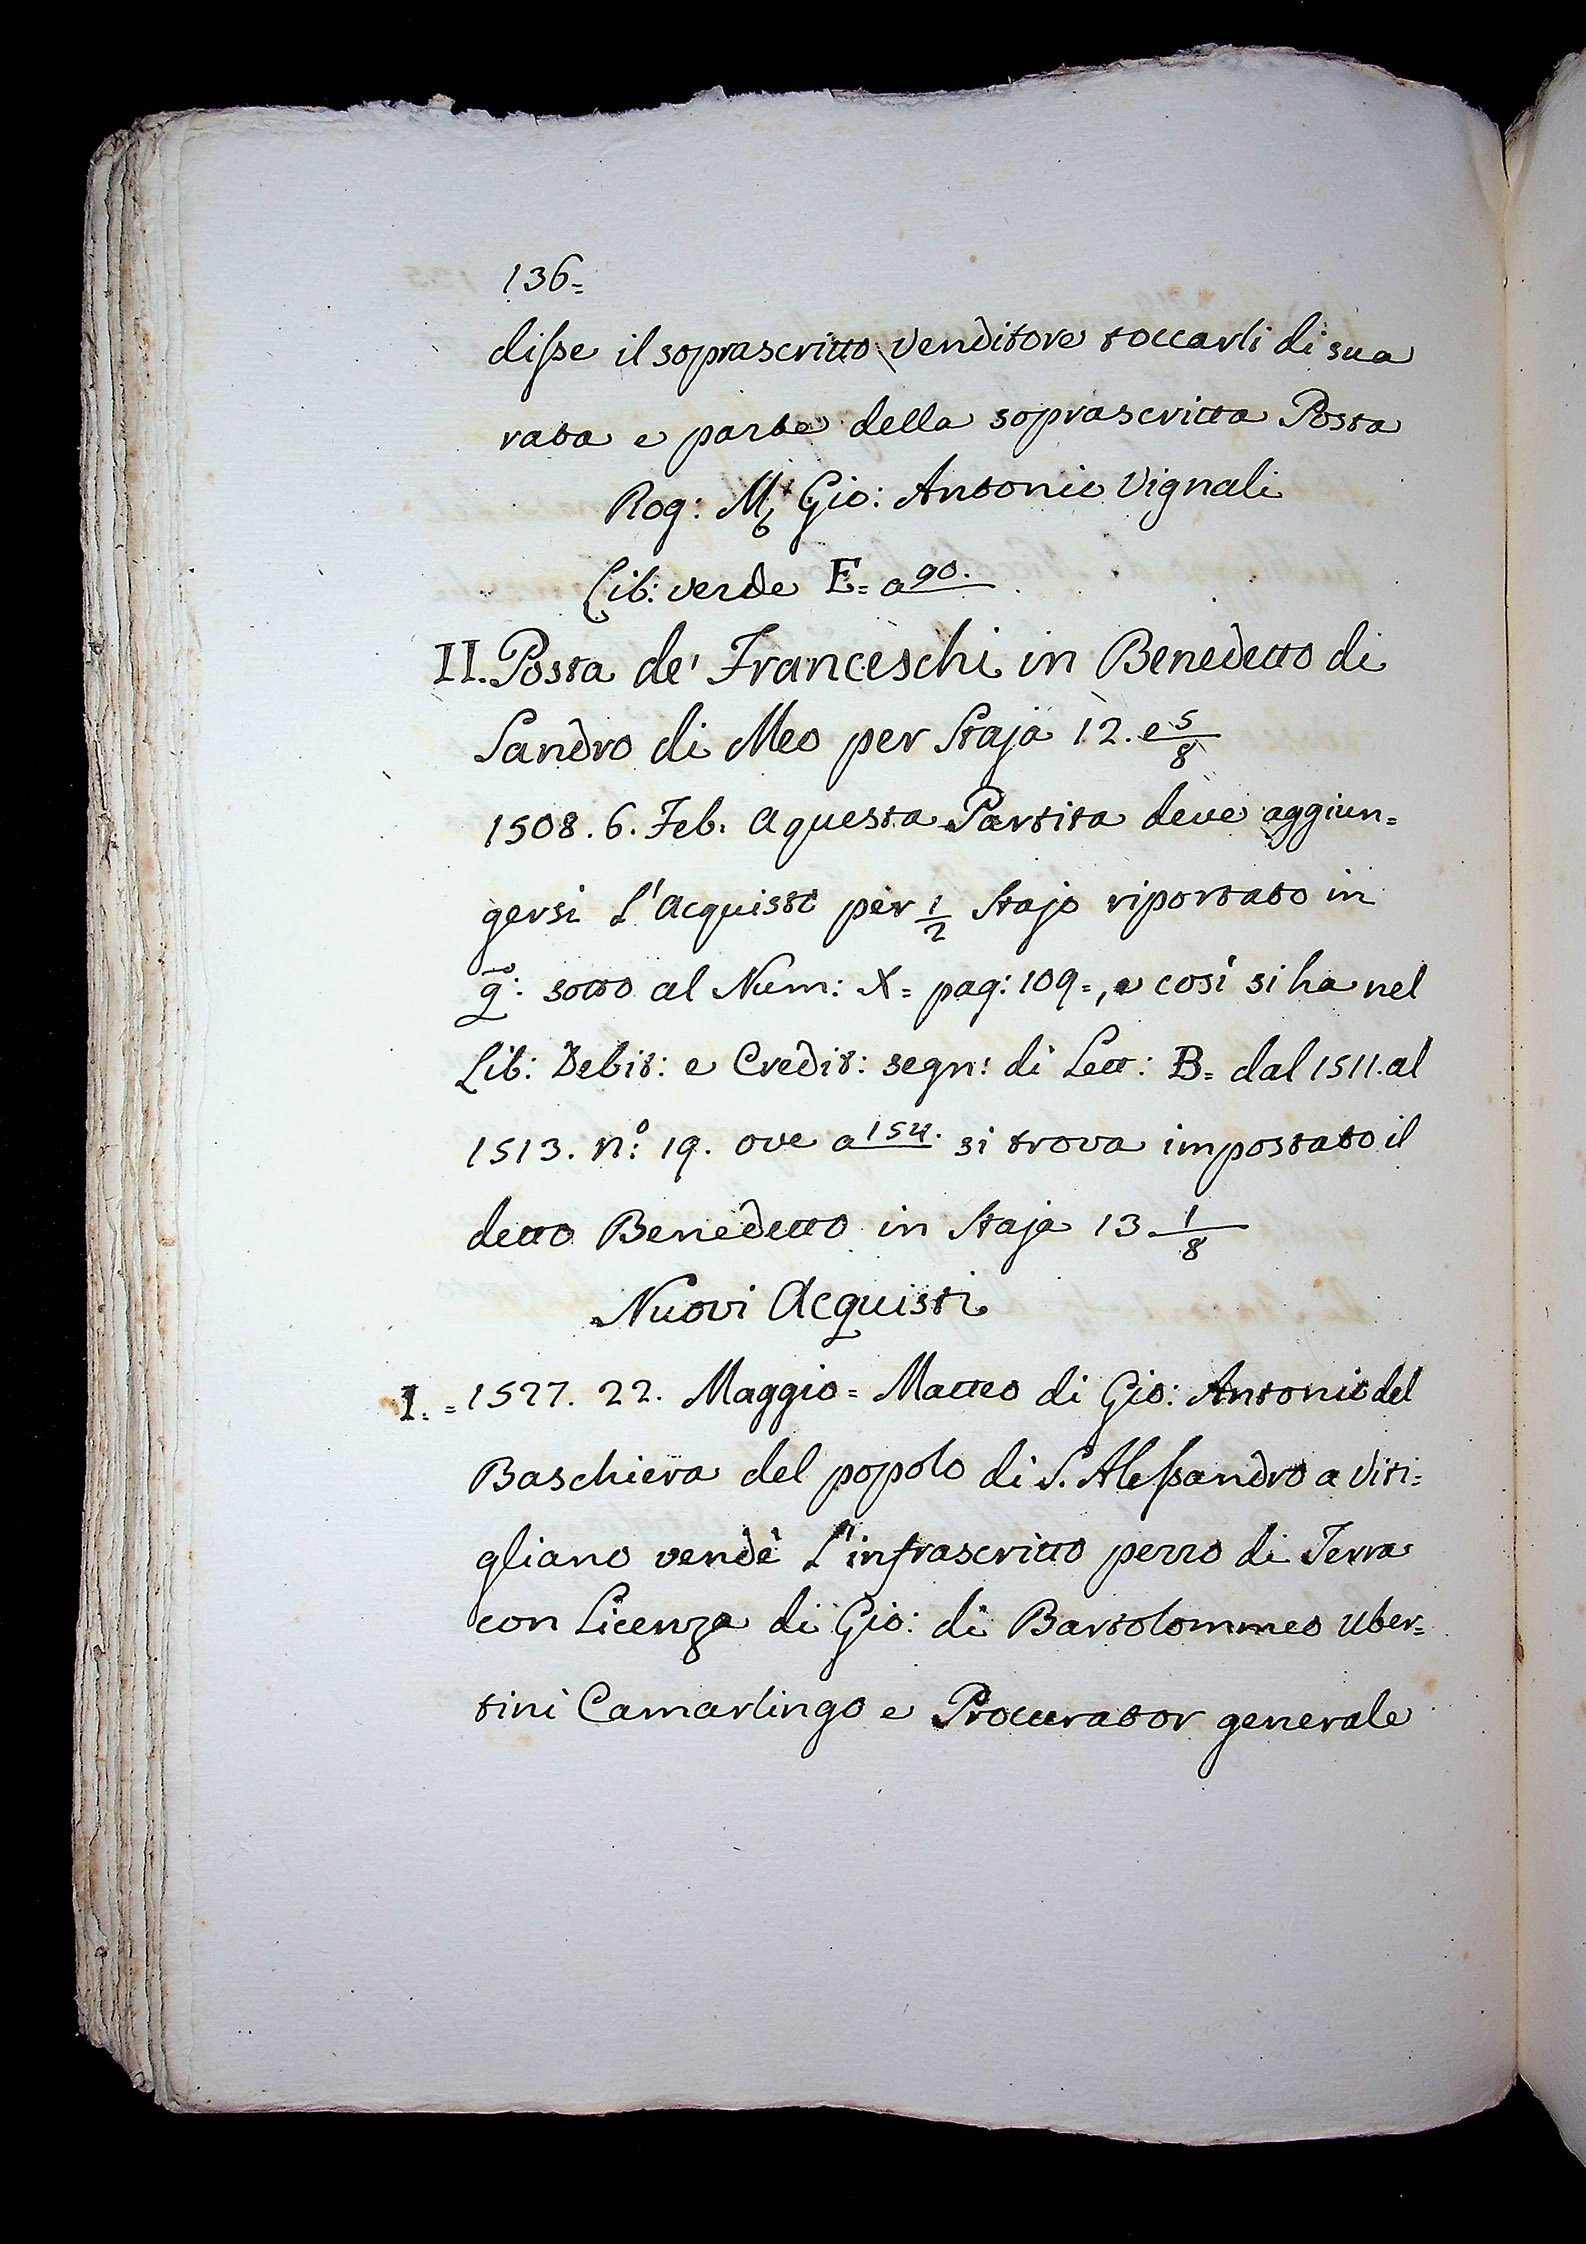 136=
disse il soprascritto Venditore toccarli di sua
rata e parte della soprascritta Posta
Rog: Mr Gio: Antonio Vignali
Lib: verde E= a 90.
II. Posta de' Franceschi in Benedetto di
Sandro di Meo per Staja 12. e 5/8
1508. 6. Feb. a questa Partita deve aggiun=
gersi L'acquisto per 1/2 Stajo riportato in
qo: sotto al Num: X= pag: 109=, e così si ha nel
Lib: Debit: e Credit: segn: di Lett: B= dal 1511. al
1513. n:o 19. ove a 154. si trova impostato il
detto Benedetto in Staja 13 1/8
Nuovi Acquisti
I.= 1527. 22. Maggio= Matteo di Gio: Antonio del
Baschiera del popolo di S. Alessandro a Viti=
gliano vendè L'infrascritto pezzo di Terra
con Licenza di Gio: di Bartolommeo Uber=
tini Camarlingo e Procurator generale